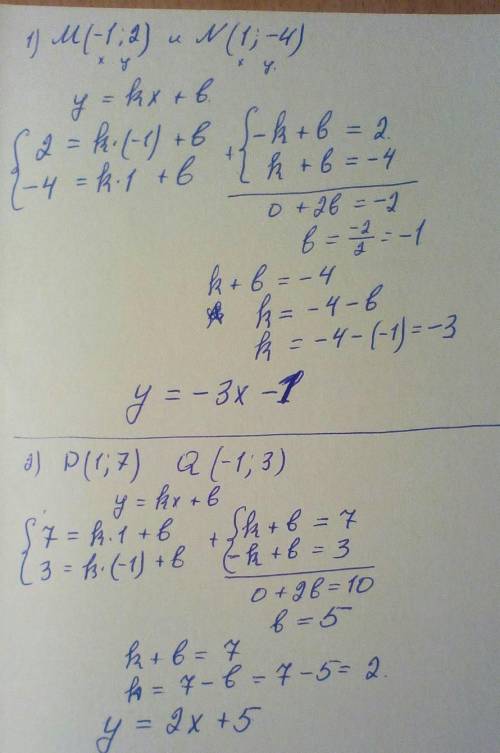 1) M(-1;2) и N(1;-4)
x y x y
y = kx + b
{ 2 = k·(-1) + b
-4 = k·1 + b
+ { -k + b = 2
k + b = -4
0 + 2b = -2
b = -2/2 = -1
k + b = -4
k = -4 - b
k = -4 - (-1) = -3
y = -3x - 1
2) P(1;7) Q(-1;3)
y = kx + b
{ 7 = k·1 + b
3 = k·(-1) + b
+ { k + b = 7
-k + b = 3
0 + 2b = 10
b = 5
k + b = 7
k = 7 - b = 7 - 5 = 2.
y = 2x + 5